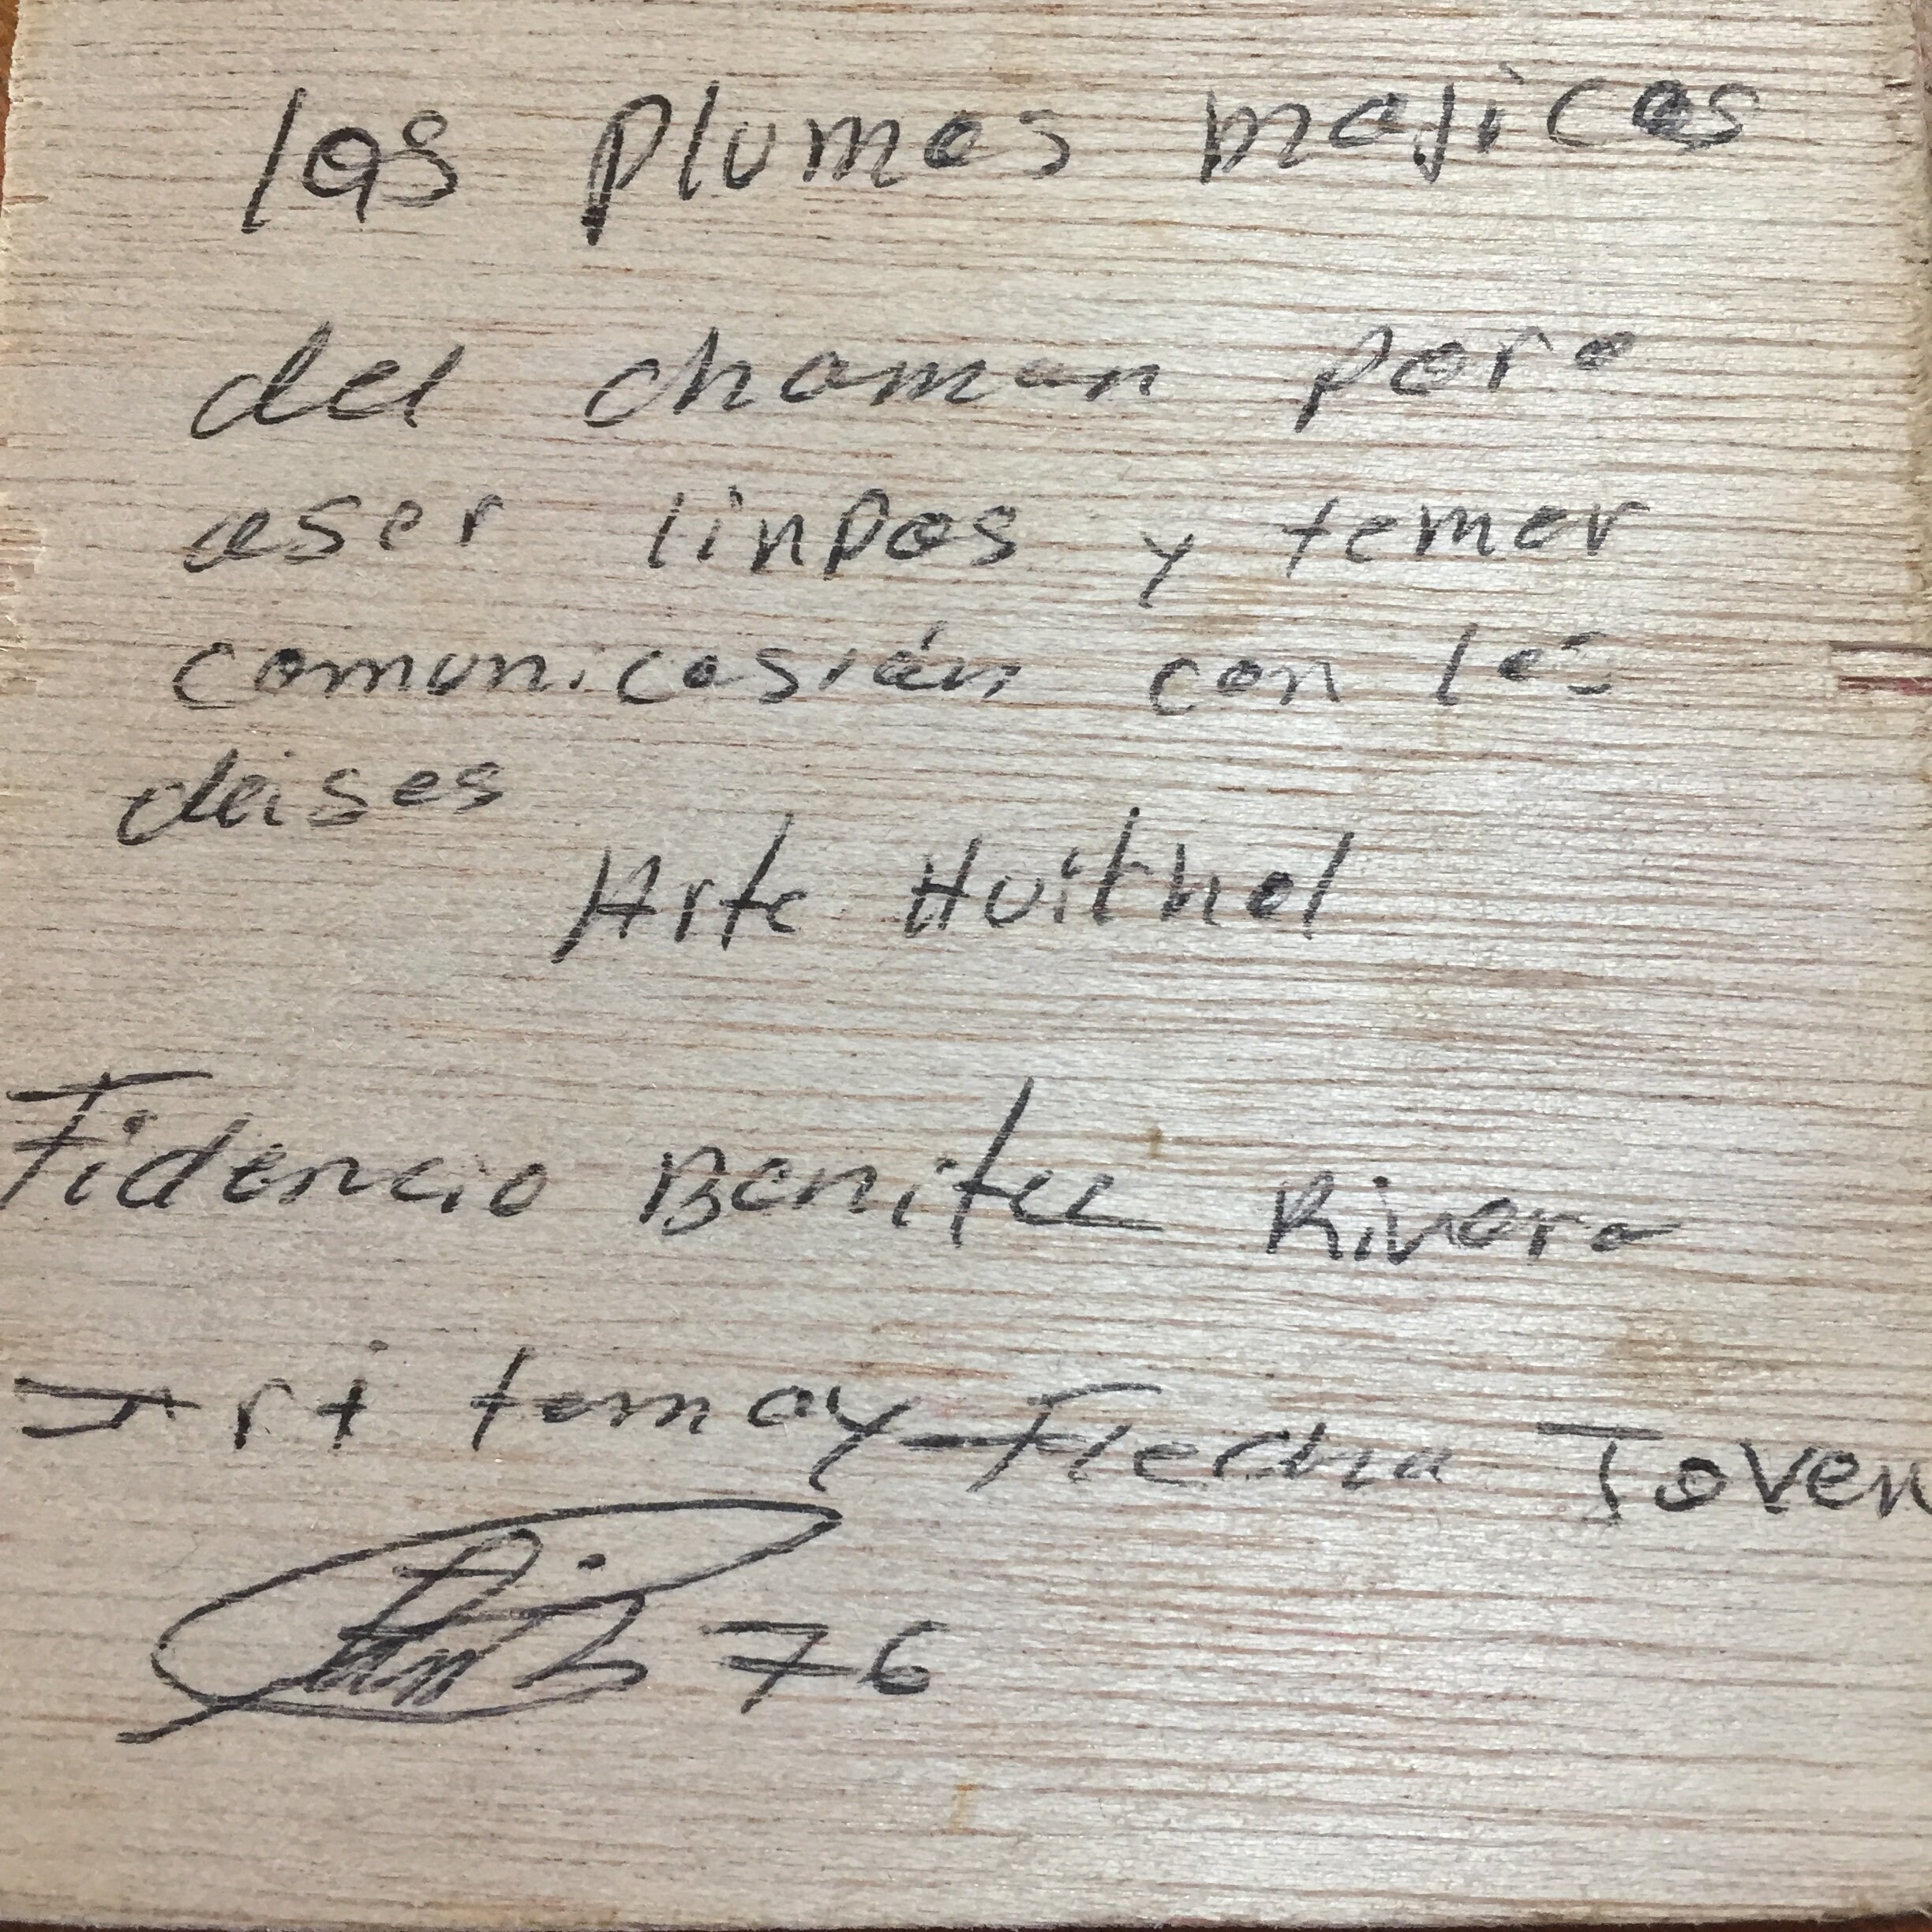 las plumas majicas
del chaman para
aser linpas y temer
comunicasión con los
deises
Arte Huithol
Fidencio Benitez Rivera
Iri temay Flecha Joven
76